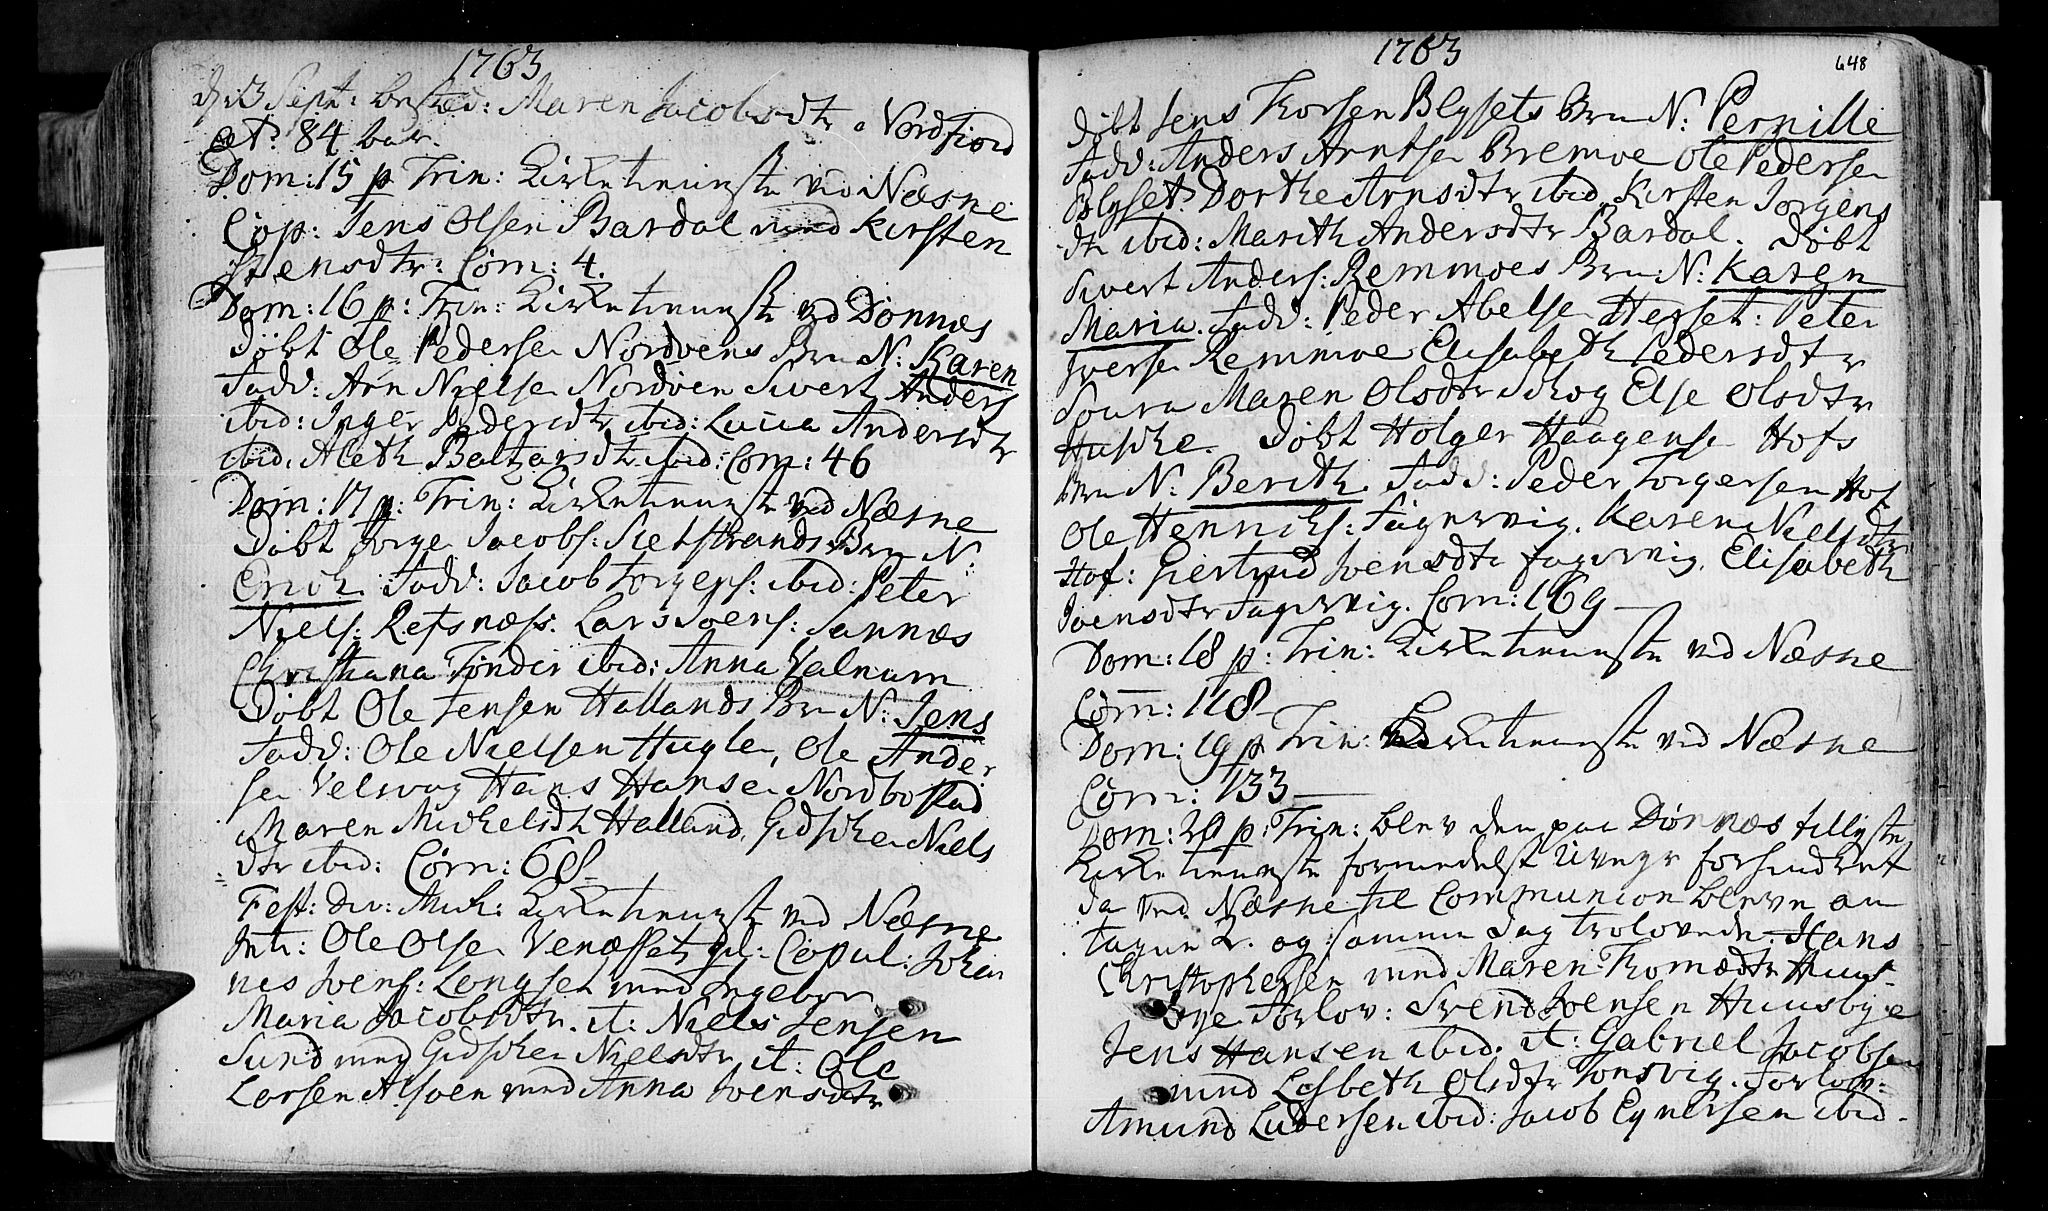 1763
d. 13 Sept: Maren Jacobsdtr Nordfiord
æt: 84
Dom: 15 p Trin: Kirketieneste ved Næsne
Cop: Jens Olsen Bardal med Kirsten
Stensdtr: Com: 4.
Dom: 16 p: Trin: Kirketieneste ved Dønnæs
Døbt Ole Pedersen Nordvens Brn N: Karen
Fadd: Arn Nielsen Nordven Sivert Anders
ibid: Inger Pedersdtr ibid: Lucia Andersdtr
ibid. Aleth Baltzarsdtr ibid: Com: 46
Dom: 17 p: Trin: Kirketieneste ved Næsne
Døbt Jørge Jacobs: Sletstrands Brn N:
Erich Fadd: Jacob Jørgens: ibid: Peter
Niels: Refsnæss. Lars Joens: Sannæs
Christiana Tønder ibid: Anna Valnum
Døbt Ole Jensen Hallands Brn N: Jens
Fadd: Ole Nielsen Hugle, Ole Ander
sen Velsvag Hans Hansen Nordbostad
Maren Michelsdtr Halland, Gidsche Niels
dtr ibid: Com: 68
Fest: div: Mich: Kirketieneste ved Næsne
Int: Ole Olsen Venæsset Copul: Johan
nes Joens: Longset med Ingebor
Maria Jacobsdtr. it: Niels Jensen
Sund med Gidsche Nielsdtr it: Ole
Larsen Alsøen med Anna Joensdtr
1763
648
Døbt Jens Thorsen Blysets Brn N: Pernille
Fadd: Anders Arntsen Bremoe Ole Pedersen
Blyset. Dorthe Arnsdtr ibid. Kirsten Jørgens
dtr ibid: Marith Andersdtr Bardal. Døbt
Sivert Anders: Remmoes Brn: N: Karen
Maria. Fadd: Peder Abelsen Herset: Peter
Iversen Remmoe Elisabeth Pedersdtr
Soura Maren Olsdtr Skog Else Olsdtr
Husche. Døbt Holger Haagensen Hofs
Brn N: Berith. Fadd: Peder Torgersen Hof
Ole Henrichs: Fagervig. Karen Nielsdtr
Hof: Giertrud Joensdtr fagervig. Elisabeth
Joensdtr Fagervig. Com: 169
Dom: 18 p: Trin: Kirketieneste ved Næsne
Com: 118
Dom: 19 p Trin: Kirketieneste ved Næsne
Com: 133
Dom: 20 p: Trin: blev den paa Dønnæs tillyste
Kirketieneste formedelst Uveyr forhindret
da ved Næsne til Communion bleve an
tagne 2. og samme Dag trolovede Hans
Christophersen med Maren Thomædtr Huus
bye Forlov: Svend Joensen Huusbye
Jens Hansen ibid. it: Gabriel Jacobsen
med Lisbeth Olsdtr Tonsvig. Forlov:
Amund Ludersen ibid: Jacob Eynersen ibid.